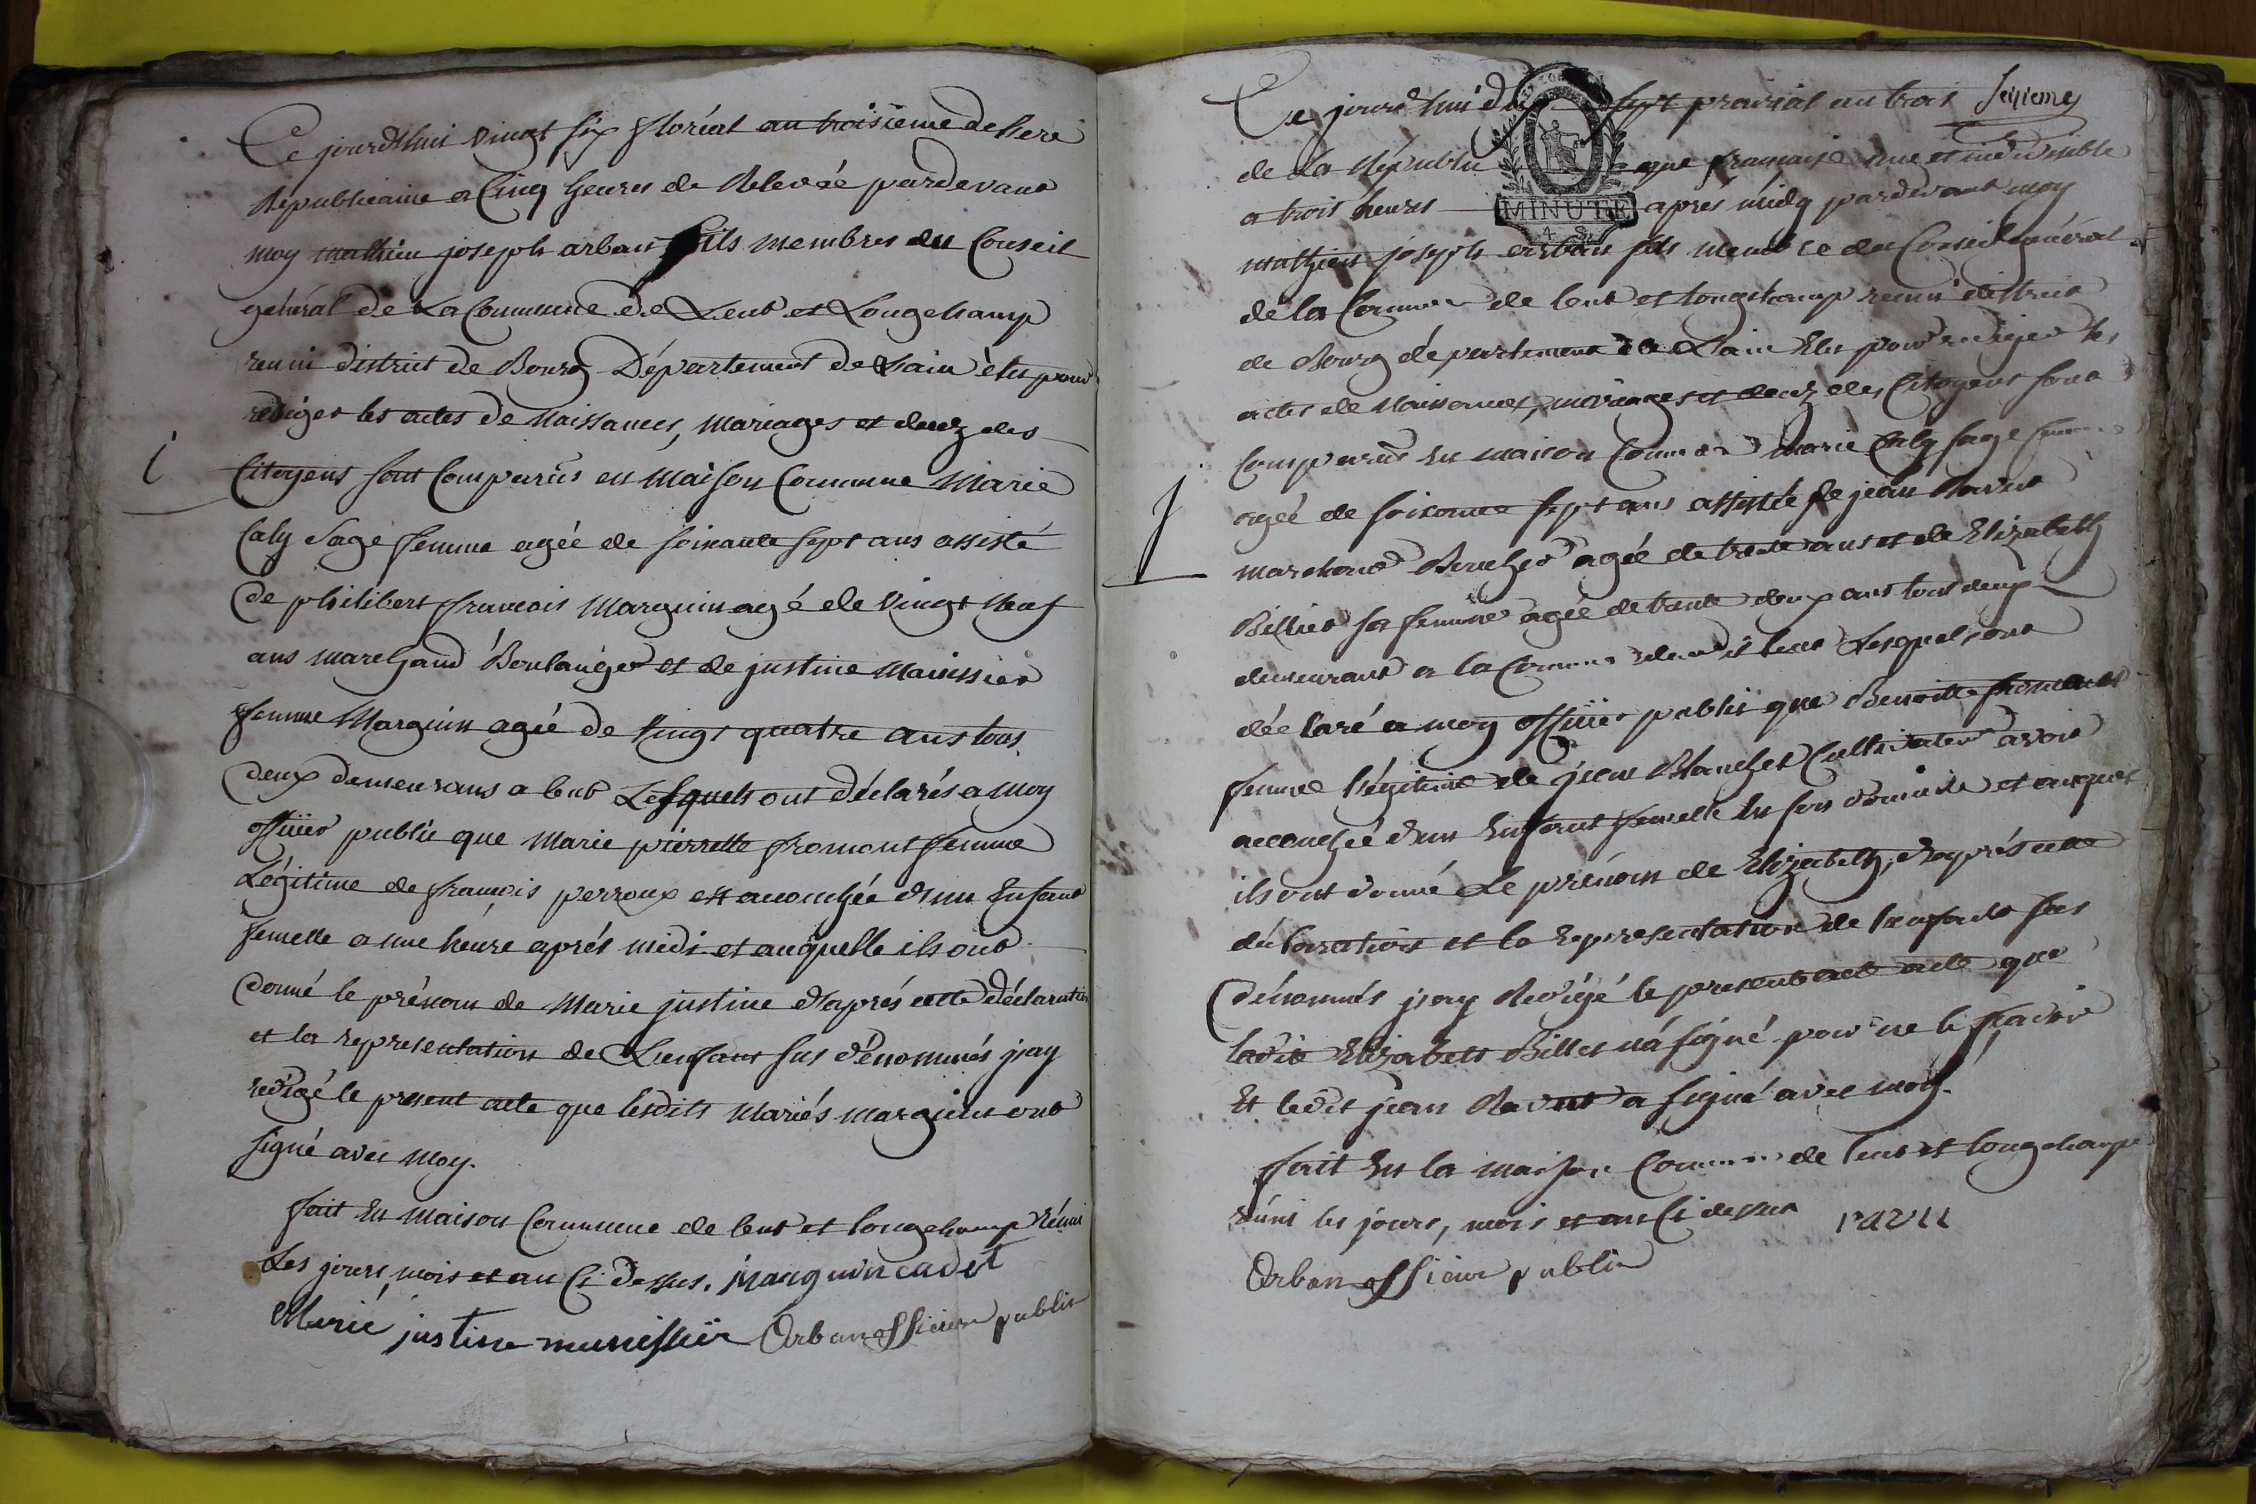 Ce jourdhui vingt six floréal an troisieme de lere
Republicaine a Cinq heures de Relevée pardevant
moy mathieu joseph arban fils membres du Conseil
général de La Commune de Lent et Longchamp
reuni district de Bourg Département de Lain élu pour
rédiger les actes de Naissances, Mariages et decez des
Citoyens sont Comparüs en Maison Commune Marie
Caly Sage femme agée de soixante sept ans assisté
de philibert francois Marguin agé de vingt Neuf
ans marchand Boulanger et de justine Manissier
femme Marguin agée de vingt quatre ans tous
deux demeurans a lent Lesquels ont déclarés a moy
officier public que Marie pierrette fromont femme
Légitime de francois perroux est accouchée d'un Enfant
femelle a une heure aprés midi et auquelle ils ont
donné le prénom de Marie justine d'aprés cette déclaration
et la representation de Lenfant sus dénommés j'ay
redigé le present acte que lesdits Mariés marguin ont
signé avec moy.
fait En maison Commune de lent et longchamp Réuni
Les jours, mois et an Ci dessus. Marguin cadet
Marie justine manissier Orban officier public
Ce jourdhui sept prairial an trois
de la Republique française une et indivisible
MINUTE
a trois heures après midy pardevant moy
mathieu joseph arban fils membre du Conseil général
de la Commune de lent et longchamp reuni district
de Bourg département de Lain Elu pour rediger les
actes de Naissances, mariages et decez des Citoyens sont
Comparüs en maison Commune marie Caly sage femme
agée de soixante sept ans assistée de jean Ravut
marchand Boucher agée de trente ans et de Elizabeth
Billier sa femme agée de trente deux ans tous deux
demeurant a la Commune dudit lent Lesquels ont
déclaré a moy officier public que Benoitte fromont
femme Légitime de jean Blanchet Cultivateur avoit
accouchée d'un Enfant femelle En son domicile et auquel
ils ont donné Le prénom de Elizabeth, d'aprés cette
déclaration et la representation de lenfant sus
dénommés j'ay Redigé le present acte que
ladite Elizabeth Billet n'a signé pour ne le scavoir
Et ledit jean Ravut a signé avec moy.
fait En la maison Commune de lent et longchamp
réuni les jours, mois et an Ci dessus ravu
Orban officier public